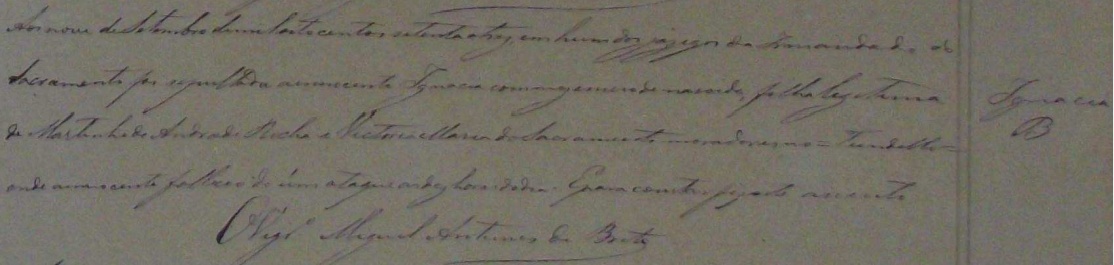 Aos nove de Setembro de mil oito centos setenta e tres, em hum dos jazigos da Irmandade do
Sacramento foi sepultada a innocente Ignacia com nove mezes de nascida, filha legitima
de Martinho de Andrade Rocha e Victoria Maria do Sacramento moradores no =
onde a innocente falleceo de um ataque as dez horas do dia. E para constar fiz este assento
O Vigr.º Miguel Antunes de Brito
Ignacia
B